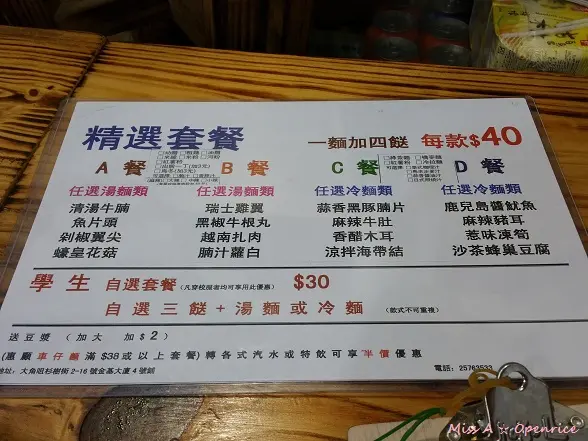 精選套餐 一麵加四餸 每款$40
A 餐 B 餐 C 餐 D 餐
任選湯麵類 任選湯麵類 任選冷麵類 任選冷麵類
清湯牛腩 瑞士雞翼 蒜香黑豚腩片 鹿兒島醬魷魚
魚片頭 黑椒牛根丸 麻辣牛肚 麻辣豬耳
剁椒翼尖 越南扎肉 香醋木耳 惹味凍筍
蠔皇花菇 腩汁蘿白 涼拌海帶結 沙茶蜂巢豆腐
學生 自選套餐 (凡穿校服者均可享用此優惠) $30
自選三餸+湯麵或冷麵 (款式不可重複)
送豆漿 (加大 加$2)
(惠顧車仔麵滿$38或以上套餐)轉各式汽水或特飲可享半價優惠
地址:大角咀杉樹街2-16號金基大廈4號舖 電話:25783533
Miss A ☆ Openrice